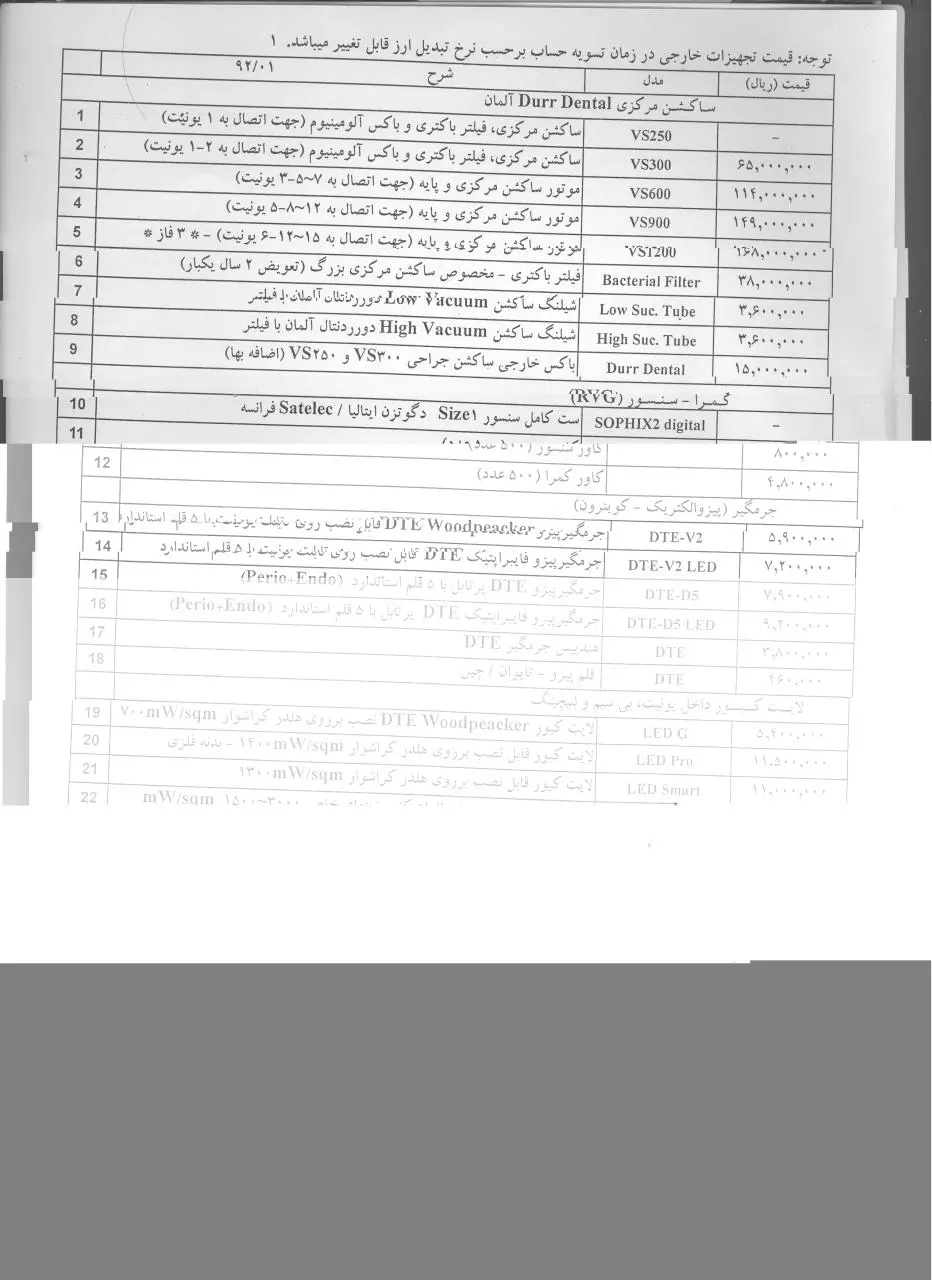 توجه: قیمت تجهیزات خارجی در زمان تسویه حساب برحسب نرخ تبدیل ارز قابل تغییر میباشد. ۱
قیمت (ریال) مدل شرح ۹۲/۰۱
ساکشن مرکزی Durr Dental آلمان
– VS250 ساکشن مرکزی، فیلتر باکتری و باکس آلومینیوم (جهت اتصال به ۱ یونیت) 1
۶۵,۰۰۰,۰۰۰ VS300 ساکشن مرکزی، فیلتر باکتری و باکس آلومینیوم (جهت اتصال به ۲-۱ یونیت) 2
۱۱۴,۰۰۰,۰۰۰ VS600 موتور ساکشن مرکزی و پایه (جهت اتصال به ۷~۵-۳ یونیت) 3
۱۴۹,۰۰۰,۰۰۰ VS900 موتور ساکشن مرکزی و پایه (جهت اتصال به ۱۲~۸-۵ یونیت) 4
۱۶۸,۰۰۰,۰۰۰ VS1200 موتور ساکشن مرکزی و پایه (جهت اتصال به ۱۵~۱۲-۶ یونیت) - * ۳ فاز * 5
۳۸,۰۰۰,۰۰۰ Bacterial Filter فیلتر باکتری - مخصوص ساکشن مرکزی بزرگ (تعویض ۲ سال یکبار) 6
۳,۶۰۰,۰۰۰ Low Suc. Tube شیلنگ ساکشن Low Vacuum دورردنتال آلمان با فیلتر 7
۳,۶۰۰,۰۰۰ High Suc. Tube شیلنگ ساکشن High Vacuum دورردنتال آلمان با فیلتر 8
۱۵,۰۰۰,۰۰۰ Durr Dental باکس خارجی ساکشن جراحی VS۳۰۰ و VS۲۵۰ (اضافه بها) 9
گمرا - سنسور (RVG)
– SOPHIX2 digital ست کامل سنسور Size۱ دگوتزن ایتالیا / Satelec فرانسه 10
۸۰۰,۰۰۰ کاور سنسور (۵۰۰ عدد) 11
۴,۸۰۰,۰۰۰ کاور کمرا (۵۰۰ عدد) 12
جرمگیر (پیزوالکتریک - کویترون)
۵,۹۰۰,۰۰۰ DTE-V2 جرمگیرپیزو DTE Woodpeacker قابل نصب روی تابلت یونیت با ۵ قلم استاندارد 13
۷,۲۰۰,۰۰۰ DTE-V2 LED جرمگیرپیزو فایبراپتیک DTE قابل نصب روی تابلت یونیت با ۵ قلم استاندارد 14
۷,۹۰۰,۰۰۰ DTE-D5 جرمگیرپیزو DTE پرتابل با ۵ قلم استاندارد (Perio+Endo) 15
۹,۲۰۰,۰۰۰ DTE-D5 LED جرمگیرپیزو فایبراپتیک DTE پرتابل با ۵ قلم استاندارد (Perio+Endo) 16
۳,۸۰۰,۰۰۰ DTE هندپیس جرمگیر DTE 17
۴۶۰,۰۰۰ DTE قلم پیرو - تایوان / چین 18
داخل یونیت، بی سیم و بلیچینگ
۵,۴۰۰,۰۰۰ LED G لایت کیور DTE Woodpeacker نصب برروی هلدر کراشوار ۷۰۰mW/sqm 19
۱۱,۵۰۰,۰۰۰ LED Pro لایت کیور قابل نصب برروی هلدر کراشوار ۱۴۰۰mW/sqm - بدنه فلزی 20
۱۱,۰۰۰,۰۰۰ LED Smart لایت کیور قابل نصب برروی هلدر کراشوار ۱۳۰۰mW/sqm 21
۱۵۰۰~۳۰۰۰ mW/sqm 22